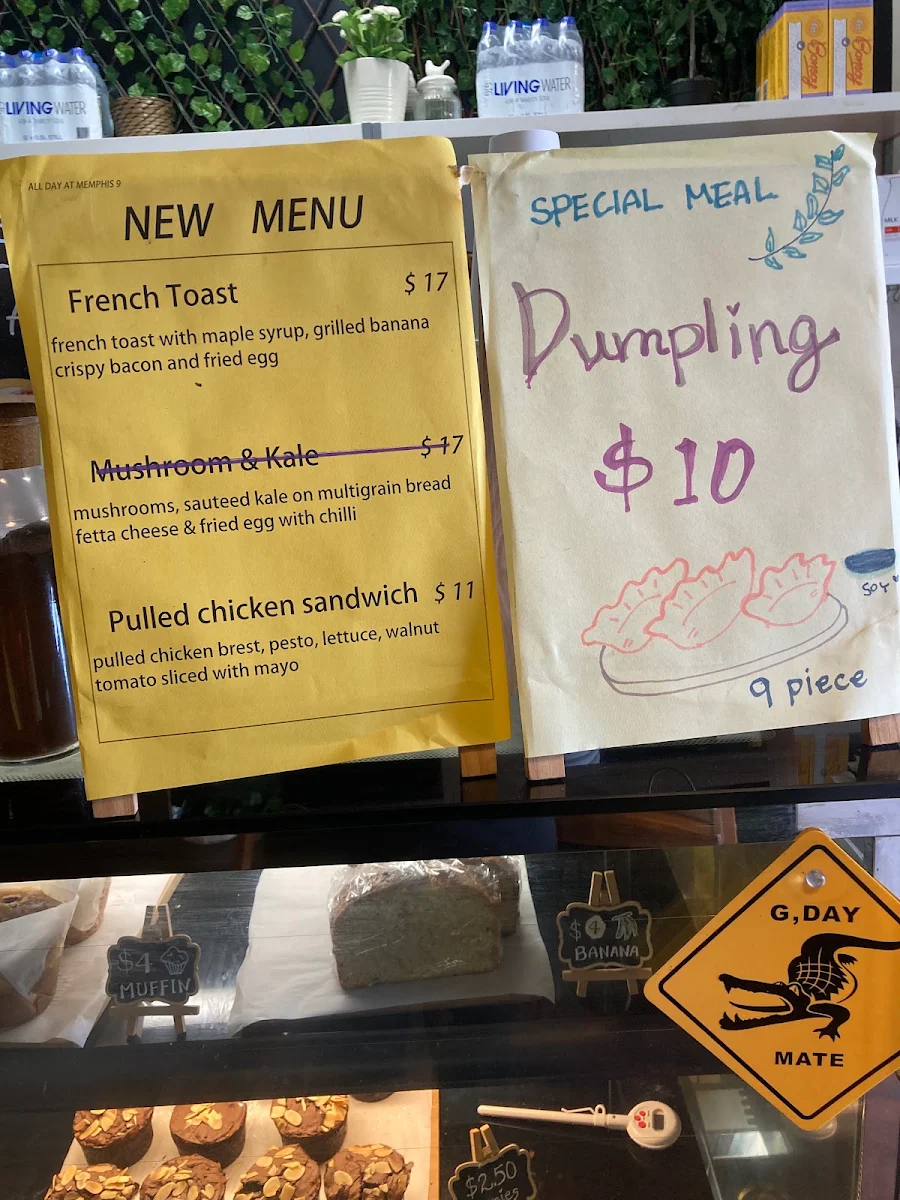 LIVING WATER
LIVING WATER
ALL DAY AT MEMPHIS 9
NEW MENU
French Toast $ 17
french toast with maple syrup, grilled banana
crispy bacon and fried egg
Mushroom & Kale $ 17
mushrooms, sauteed kale on multigrain bread
fetta cheese & fried egg with chilli
Pulled chicken sandwich $ 11
pulled chicken brest, pesto, lettuce, walnut
tomato sliced with mayo
SPECIAL MEAL
Dumpling
$ 10
SOY
9 piece
$4
MUFFIN
$4
BANANA
G,DAY
MATE
$2.50